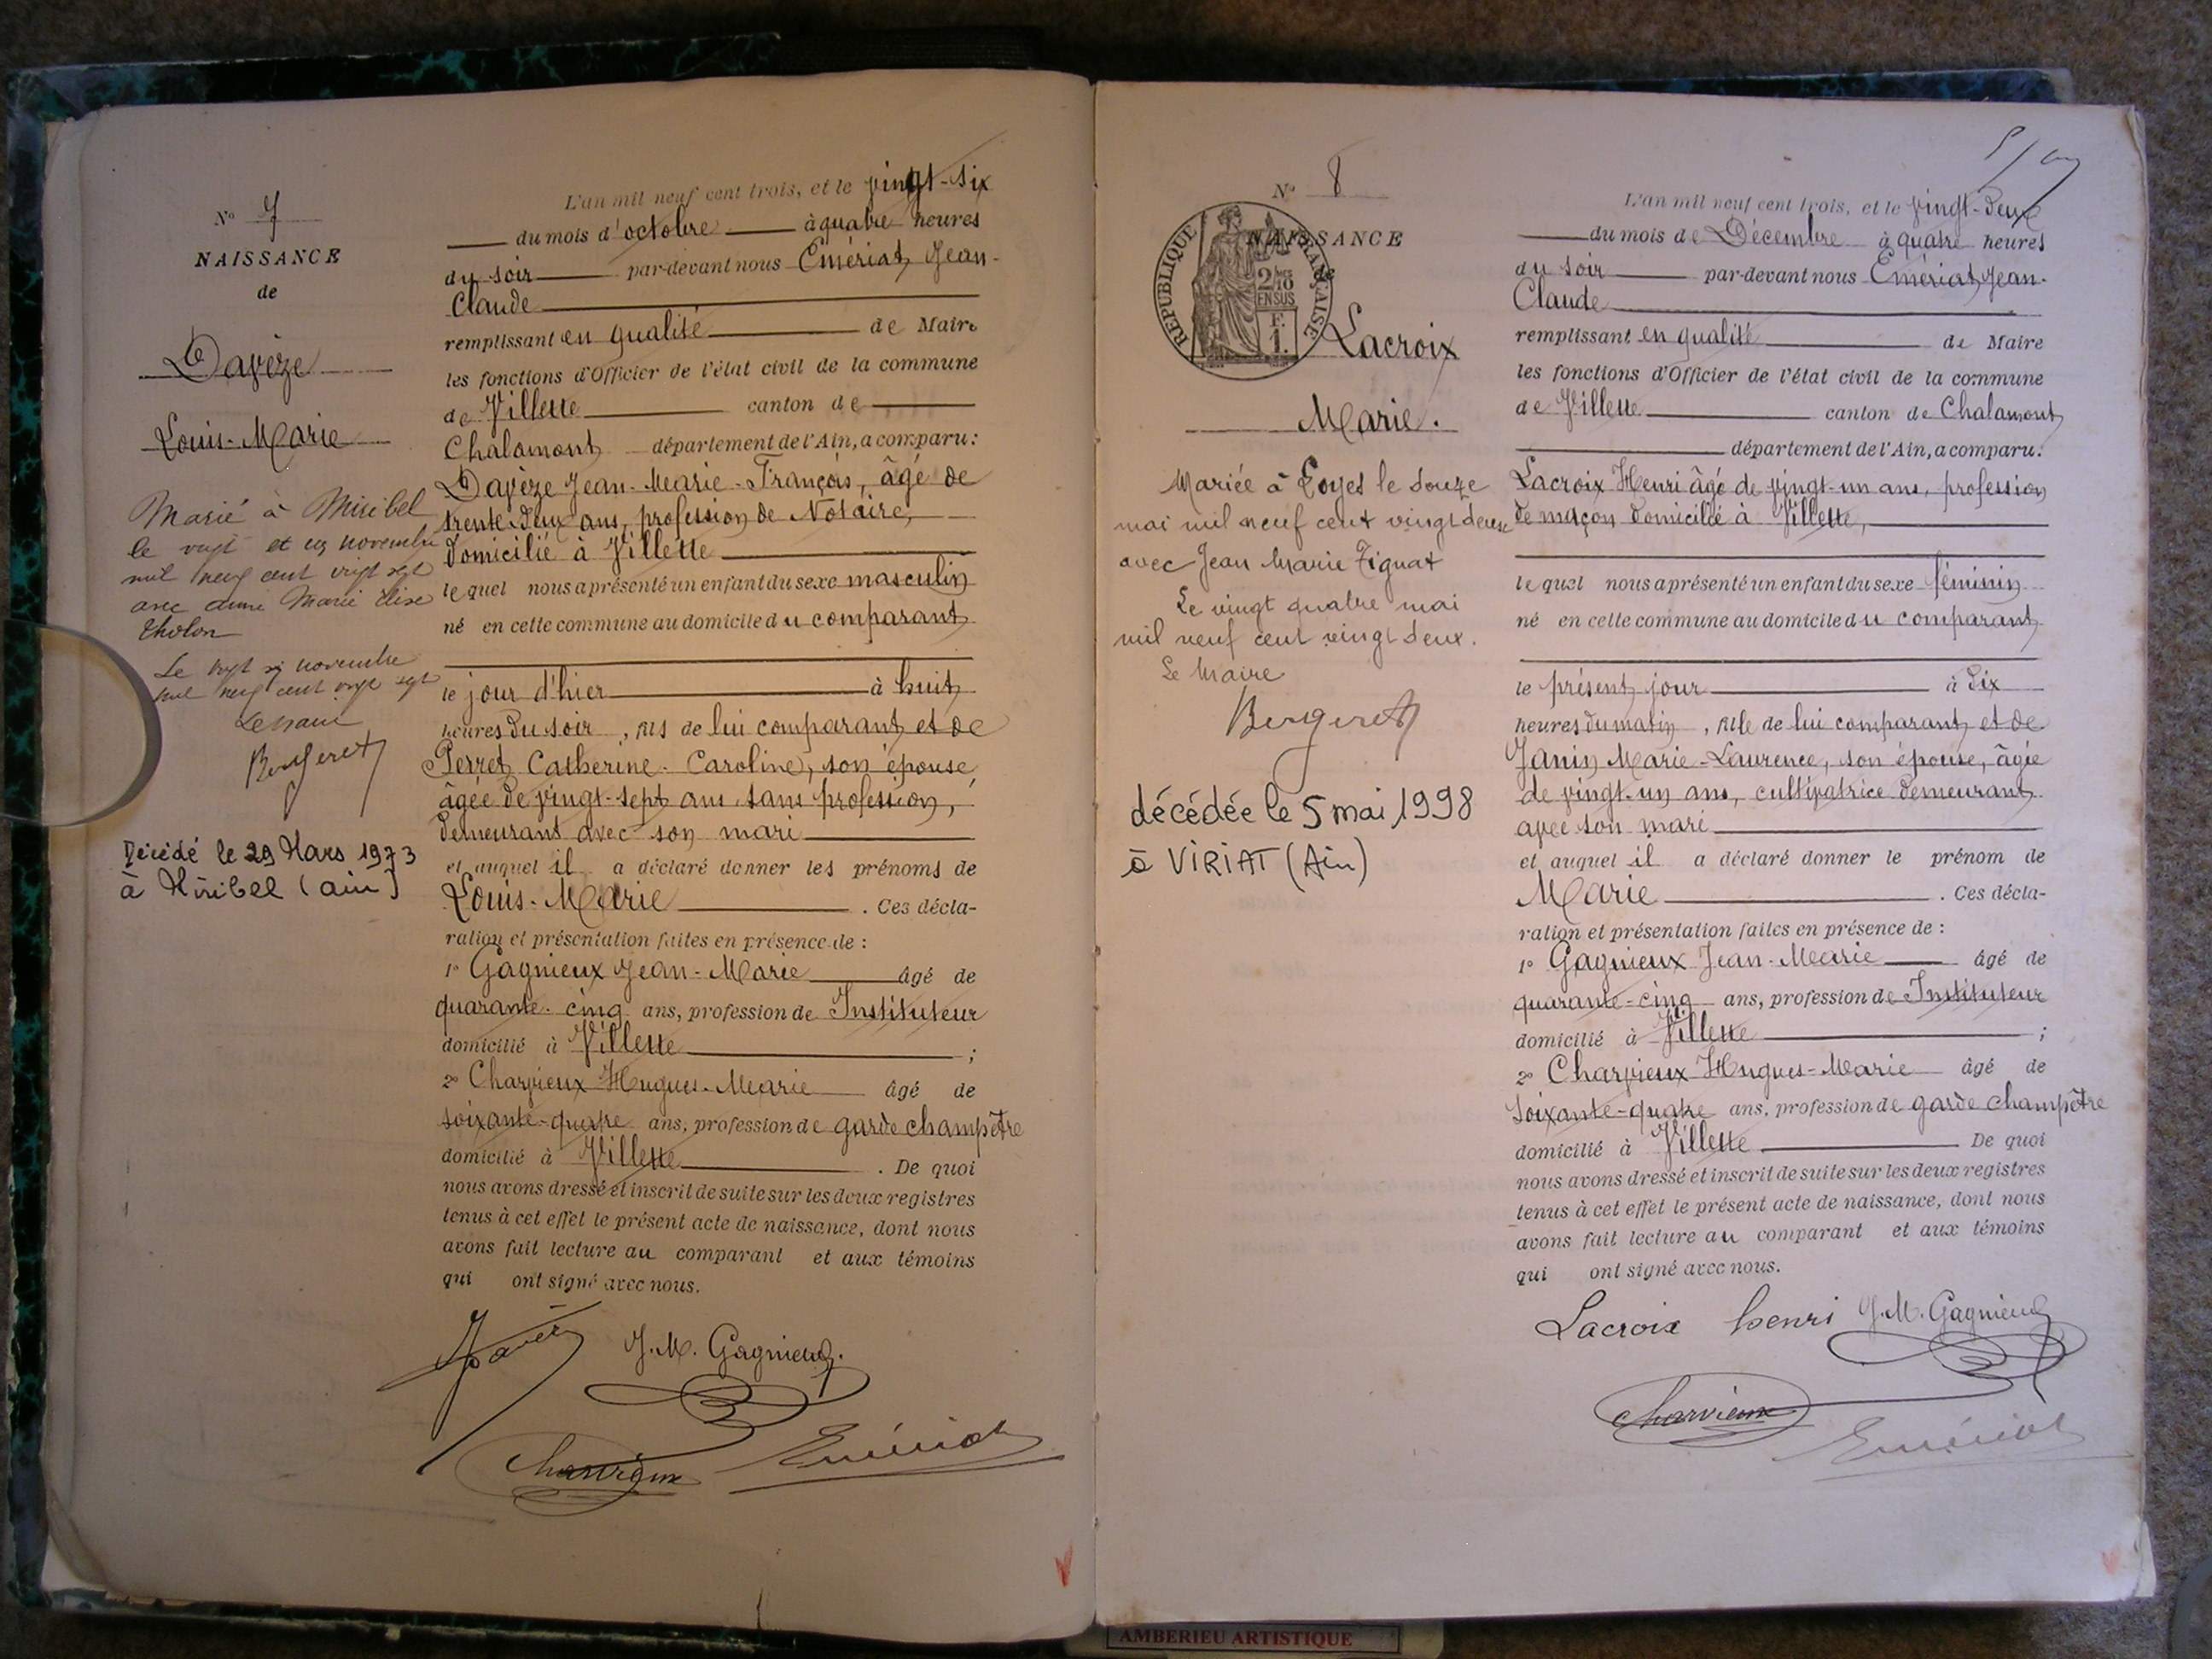 N° 7
NAISSANCE
de
Davèze
Louis-Marie
Marié à Miribel
le vingt et un novembre
mil neuf cent vingt sept
avec Marie Elise
Tholon
Le vingt six novembre
mil neuf cent vingt sept
Le maire
Bergeret
Décédé le 29 Mars 1973
à Miribel (ain)
L'an mil neuf cent trois, et le vingt-six
du mois d'octobre à quatre heures
du soir par-devant nous Emériat Jean-
Claude
remplissant en qualité de Maire
les fonctions d'Officier de l'état civil de la commune
de Villette canton de
Chalamont département de l'Ain, a comparu:
Davèze Jean-Marie-François, âgé de
trente-deux ans, profession de Notaire,
domicilié à Villette
lequel nous a présenté un enfant du sexe masculin
né en cette commune au domicile du comparant
le jour d'hier à huit
heures du soir, fils de lui comparant et de
Perret Catherine-Caroline, son épouse
âgée de vingt-sept ans, sans profession,
demeurant avec son mari
et auquel il a déclaré donner les prénoms de
Louis-Marie. Ces décla-
ration et présentation faites en présence de :
1° Gagnieux Jean-Marie âgé de
quarante-cinq ans, profession de Instituteur
domicilié à Villette ;
2° Charvieux Hugues-Marie âgé de
soixante-quatre ans, profession de garde champêtre
domicilié à Villette. De quoi
nous avons dressé et inscrit de suite sur les deux registres
tenus à cet effet le présent acte de naissance, dont nous
avons fait lecture au comparant et aux témoins
qui ont signé avec nous.
J.M. Gagnieux.
Charvieux Emériat
N° 8
NAISSANCE
de
RÉPUBLIQUE FRANÇAISE
2/10
EN SUS
F.
1.
Lacroix
Marie.
Mariée à Loyes le douze
mai mil neuf cent vingt deux
avec Jean Marie Tignat
Le vingt quatre mai
mil neuf cent vingt deux.
Le Maire
Bergeret
décédée le 5 mai 1998
à VIRIAT (Ain)
L'an mil neuf cent trois, et le vingt-deux
du mois de Décembre à quatre heures
du soir par-devant nous Emériat Jean-
Claude
remplissant en qualité de Maire
les fonctions d'Officier de l'état civil de la commune
de Villette canton de Chalamont
département de l'Ain, a comparu:
Lacroix Henri âgé de vingt-un ans, profession
de maçon domicilié à Villette,
lequel nous a présenté un enfant du sexe féminin
né en cette commune au domicile du comparant
le présent jour à dix
heures du matin, fille de lui comparant et de
Janin Marie-Laurence, son épouse, âgée
de vingt-un ans, cultivatrice demeurant
avec son mari
et auquel il a déclaré donner le prénom de
Marie. Ces décla-
ration et présentation faites en présence de :
1° Gagnieux Jean-Marie âgé de
quarante-cinq ans, profession de Instituteur
domicilié à Villette ;
2° Charvieux Hugues-Marie âgé de
soixante-quatre ans, profession de garde champêtre
domicilié à Villette De quoi
nous avons dressé et inscrit de suite sur les deux registres
tenus à cet effet le présent acte de naissance, dont nous
avons fait lecture au comparant et aux témoins
qui ont signé avec nous.
Lacroix henri J.M. Gagnieux
Charvieux
Emériat
AMBERIEU ARTISTIQUE